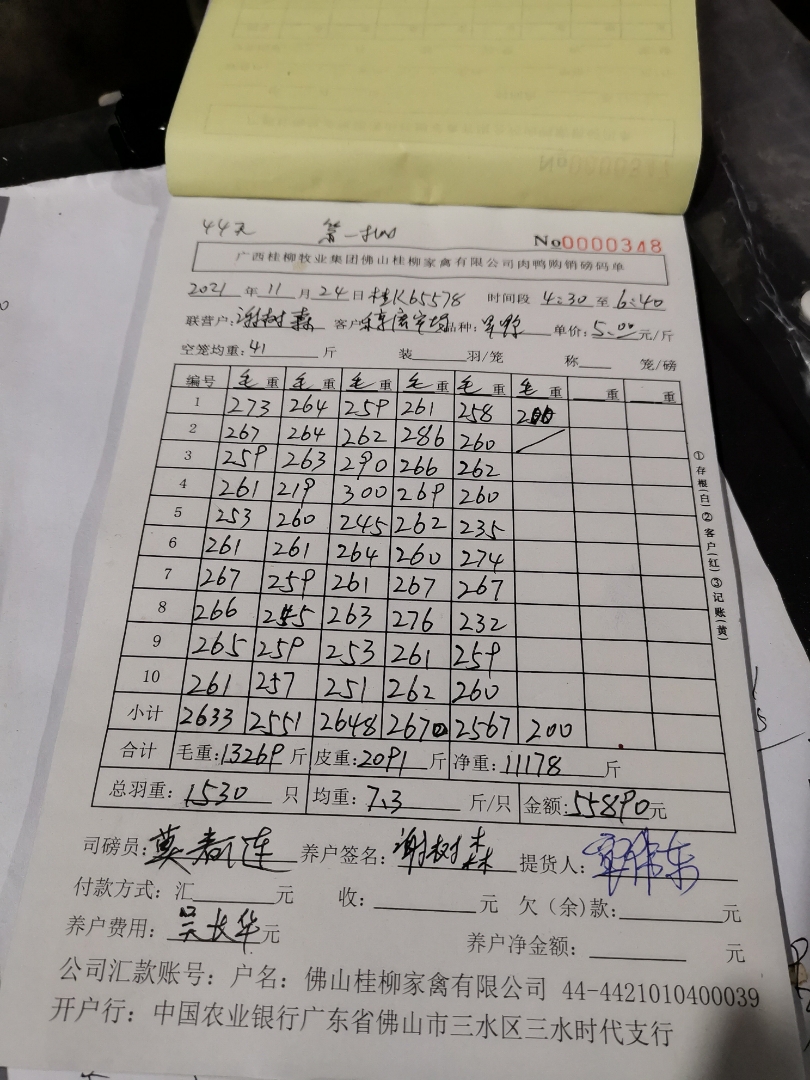 44天 第一批
No0000348
广西桂柳牧业集团佛山桂柳家禽有限公司肉鸭购销磅码单
2021 年 11 月 24 日 桂K65578 时间段 4:30 至 6:40
联营户: 谢树森 客户 品种: 单价: 5.00 元/斤
空笼均重: 41 斤 装 羽/笼 称 笼/磅
编号 毛重 毛重 毛重 毛重 毛重 毛重 重 重
1 273 264 259 261 258 200
2 267 264 262 286 260
3 259 263 290 266 262
4 261 219 300 269 260
5 253 260 245 262 235
6 261 261 264 260 274
7 267 259 261 267 267
8 266 255 263 276 232
9 265 259 253 261 259
10 261 257 251 262 260
小计 2633 2551 2648 2670 2567 200
合计 毛重: 13269 斤 皮重: 2091 斤 净重: 11178 斤
总羽重: 1530 只 均重: 7.3 斤/只 金额: 55890 元
司磅员: 养户签名: 谢树森 提货人:
付款方式: 汇 元 收: 元 欠(余)款: 元
养户费用: 吴长华 元 养户净金额: 元
公司汇款账号: 户名: 佛山桂柳家禽有限公司 44-4421010400039
开户行: 中国农业银行广东省佛山市三水区三水时代支行
①存根(白)②客户(红)③记账(黄)